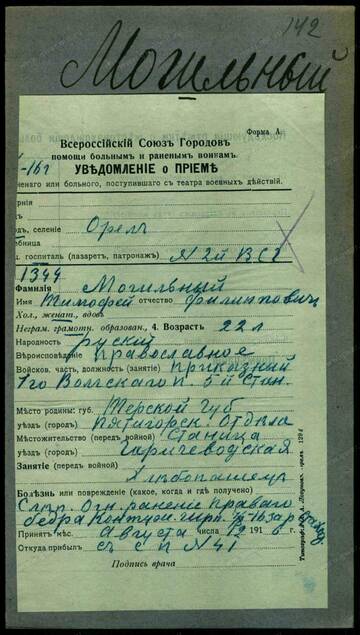 142
Могильный
Форма А.
Всероссійскій Союзъ Городовъ
помощи больнымъ и раненымъ воинамъ.
-16 г
УВѢДОМЛЕНІЕ о ПРІЕМѢ
ненаго или больного, поступившаго съ театра военныхъ дѣйствій.
рнія
ъ, селеніе Орелъ
бница
, госпиталь (лазаретъ, патронажъ) N 2й ВСГ
1344
Фамилія Могильный
Имя Тимофей отчество Филиповичъ
Хол., женат., вдовъ
Неграм. грамотн. образован., 4. Возрастъ 22 л
Народность Руский
Вѣроисповѣданіе Православное
Войсков. часть, должность (занятіе) приказный
1го Волжскаго п. 5й Сотн.
Мѣсто родины: губ. Терской Губ
уѣздъ (городъ) Пятигорск. Отдѣла
Мѣстожительство (передъ войной) Станица
уѣздъ (городъ) Горячеводская
Занятіе (передъ войной)
Хлѣбопашецъ
Болѣзнь или поврежденіе (какое, когда и гдѣ получено)
Слѣп. Огн. раненіе Праваго
бедра
Принятъ мѣс. Августа числа 12 1916
Откуда прибылъ с С П N 41
Подпись врача